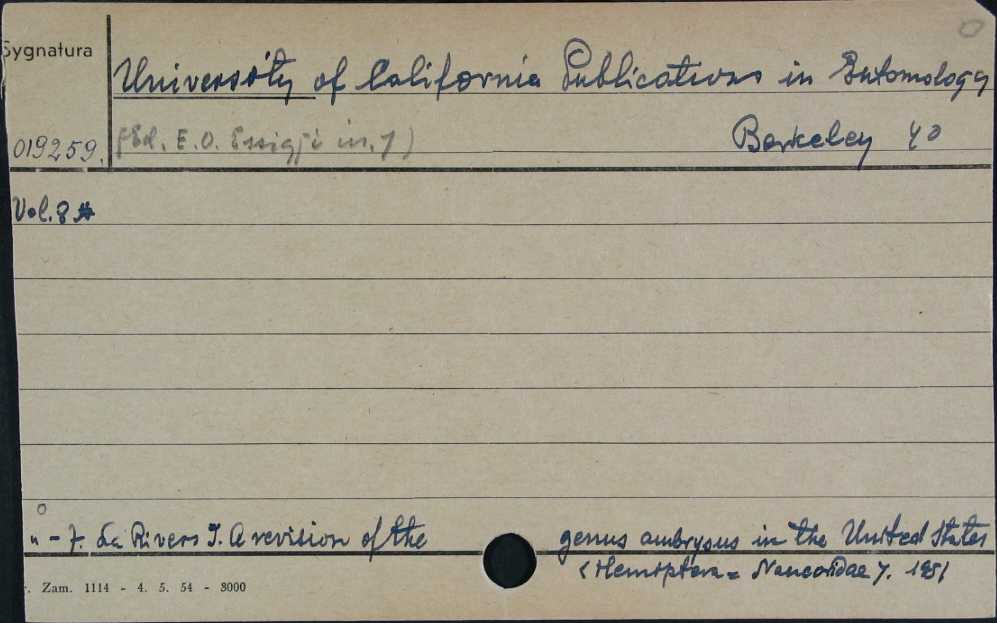 Sygnatura
University of California Publications in Entomology
019259. (Ed. E. O. Essig i in.) Berkeley 4°
Vol. 8
" - 7. La Rivers I. A revision of the genus ambrysus in the United States
(Hemiptera = Naucoridae). 1951
Zam. 1114 - 4. 5. 54 - 3000